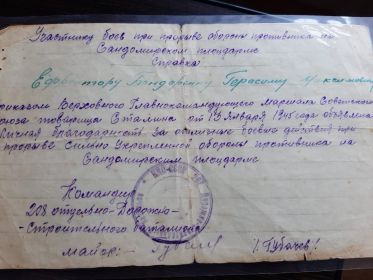 Участнику боев при прорыве обороны противника на
Сандомирском плацдарме
Справка
Ефрейтору Бондаренку Герасиму Максимовичу
риказом Верховного Главнокомандующего Маршала Советского
оюза товарища Сталина от 13 января 1945 года объявлена
личная благодарность за отличные боевые действия при
прорыве сильно укрепленной обороны противника на
Сандомирском плацдарме
Командир
208 отдельно-Дорожно-
-Строительного баталиона
майор:-
/. Губачев/.